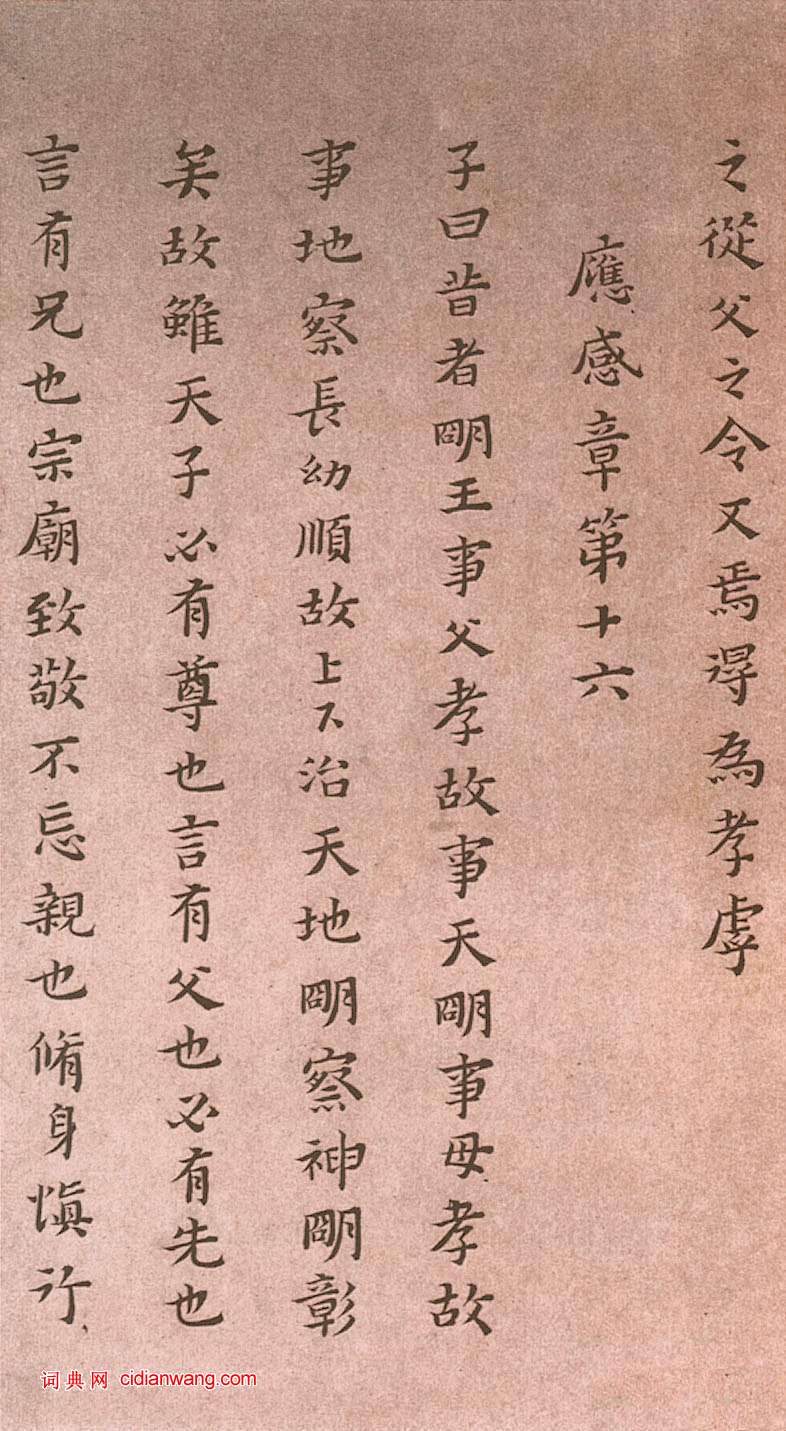 之從父之令又焉得為孝虖
應感章第十六
子曰昔者明王事父孝故事天明事母孝故
事地察長幼順故上下治天地明察神明彰
矣故雖天子必有尊也言有父也必有先也
言有兄也宗廟致敬不忘親也脩身慎行
词典网 cidianwang.com